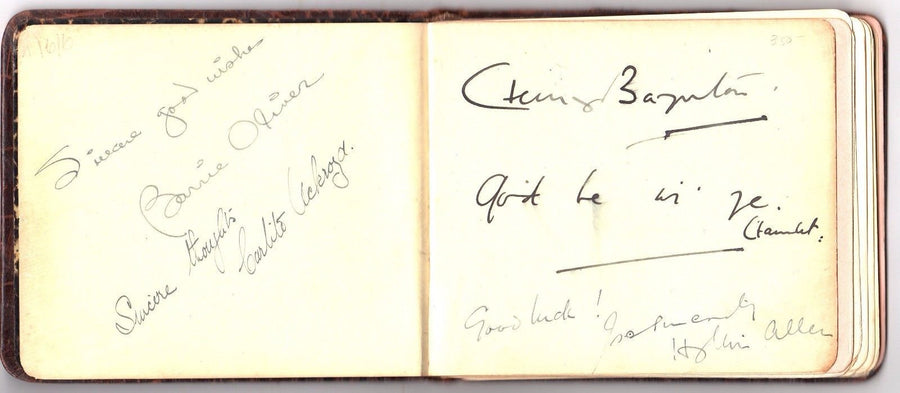 Sincere good wishes
Barrie Oliver
Sincere thoughts
Carlito Ackroyd.
350-
Henry Baynton.
God be wi' ye.
(Hamlet.
Good luck!
Yrs sincerely
Allen